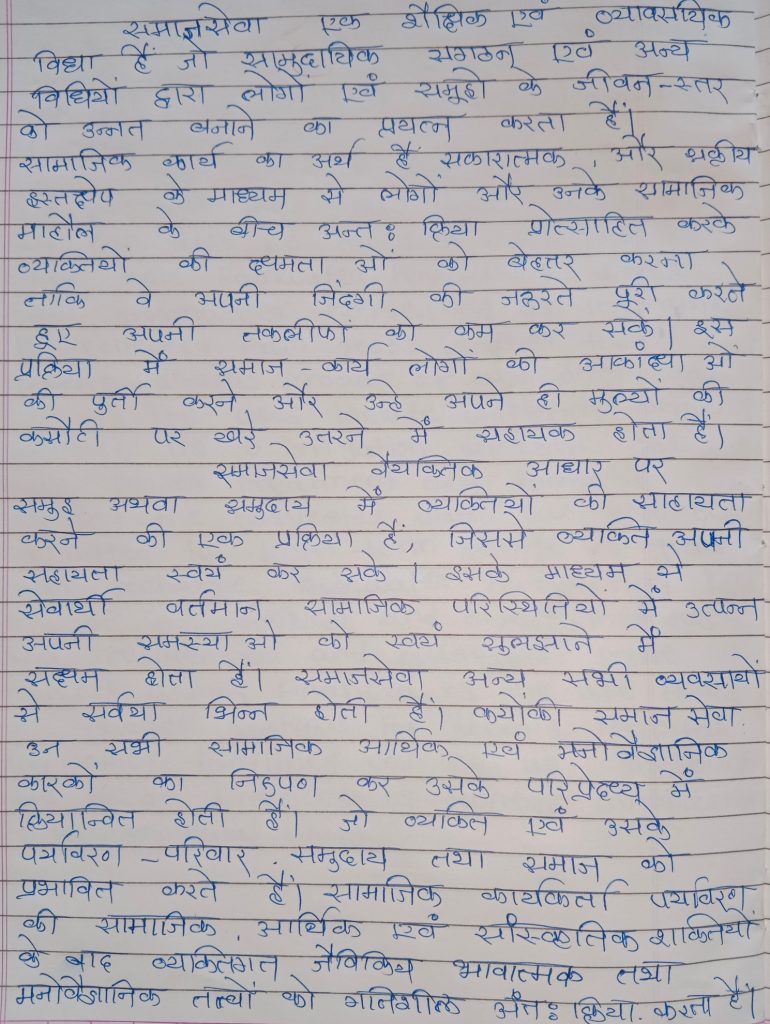 समाजसेवा एक शैक्षिक एवं व्यावसायिक
विधा हैं जो सामुदायिक सगठन एवं अन्य
विधियों द्वारा लोगों एवं समूहो के जीवन-स्तर
को उन्नत बनाने का प्रयत्न करता हैं।
सामाजिक कार्य का अर्थ हैं सकारात्मक, और सक्रीय
हस्तक्षेप के माध्यम से लोगों और उनके सामाजिक
माहौल के बीच अन्तः क्रिया प्रोत्साहित करके
व्यक्तियों की क्षमता ओं को बेहतर करना
ताकि वे अपनी जिंदगी की जरूरते पूरी करते
हूए अपनी तकलीफों को कम कर सकें। इस
प्रक्रिया में समाज-कार्य लोगों की आकांक्षा ओं
की पुर्ती करने और उन्हे अपने ही मुल्यों की
कसौटी पर खरे उतरने में सहायक होता हैं।
समाजसेवा वैयक्तिक आधार पर
समुह अथवा समुदाय में व्यक्तियों की साहायता
करने की एक प्रक्रिया हैं, जिससे व्यक्ति अपनी
सहायता स्वयं कर सके। इसके माध्यम से
सेवार्थी वर्तमान सामाजिक परिस्थितियों में उत्पन्न
अपनी समस्या ओ को स्वयं सुलझाने में
सक्षम होता हैं। समाजसेवा अन्य सभी व्यवसायों
से सर्वथा भिन्न होती हैं। क्योंकी समाज सेवा
उन सभी सामाजिक आर्थिक एवं मनोवैज्ञानिक
कारकों का निरुपण कर उसके परिप्रेक्ष्य में
क्रियान्वित होती हैं। जो व्यक्ति एवं उसके
पर्यावरण-परिवार, समुदाय तथा समाज को
प्रभावित करते हैं। सामाजिक कार्यकर्ता पर्यावरण
की सामाजिक, आर्थिक एवं सांस्कृतिक शक्तियों
के बाद व्यक्तिगत जैविकिय भावात्मक तथा
मनोवैज्ञानिक तत्वों को गतिशील अंतः क्रिया. करता हैं।